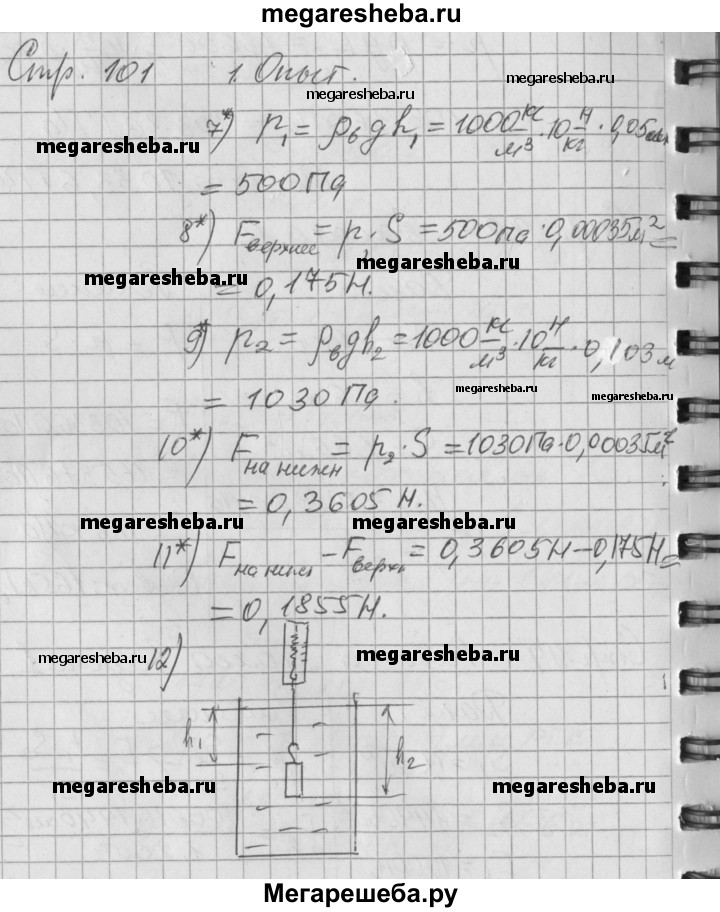 megaresheba.ru
Стр. 101 1. Опыт.
megaresheba.ru
megaresheba.ru
7*) p₁ = ρвgh₁ = 1000 кг/м³ · 10 Н/кг · 0,05 м
megaresheba.ru
= 500 Па
8*) Fверхнее = p₁ · S = 500 Па · 0,00035 м² =
megaresheba.ru
megaresheba.ru
= 0,175 Н.
9*) p₂ = ρвgh₂ = 1000 кг/м³ · 10 Н/кг · 0,103 м
megaresheba.ru
megaresheba.ru
= 1030 Па.
10*) Fна нижн = p₂ · S = 1030 Па · 0,00035 м²
= 0,3605 Н.
megaresheba.ru
megaresheba.ru
11*) Fна нижн – Fверхн = 0,3605 Н – 0,175 Н =
= 0,1855 Н.
megaresheba.ru
12)
megaresheba.ru
h₁
h₂
megaresheba.ru
megaresheba.ru
Мегарешеба.ру